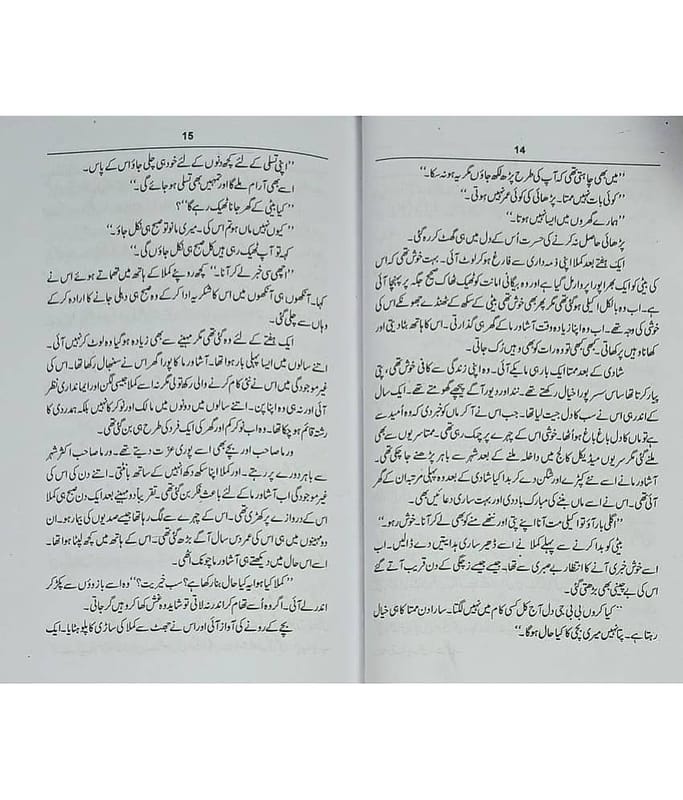 14
’’میں بھی چاہتی تھی کہ آپ کی طرح پڑھ لکھ جاؤں مگر یہ ہو نہ سکا۔‘‘
’’کوئی بات نہیں ممتا۔ پڑھائی کی کوئی عمر نہیں ہوتی۔‘‘
’’ہمارے گھروں میں ایسا نہیں ہوتا۔‘‘
پڑھائی حاصل نہ کرنے کی حسرت اُس کے دل میں ہی گھٹ کر رہ گئی۔
ایک ہفتے بعد کملا اپنی ذمہ داری سے فارغ ہو کر لوٹ آئی۔ بہت خوش تھی کہ اس
کی بیٹی کو ایک بھرا پورا پریوار مل گیا ہے اور وہ بیگانی امانت کو ٹھیک ٹھاک صحیح جگہ پر پہنچا آئی
ہے۔ اب وہ بالکل اکیلی ہو گئی تھی مگر پھر بھی خوش تھی بیٹی کے سکھ کے ٹھنڈے جھونکے اس کی
خوشی کی وجہ تھے۔ اب وہ اپنا زیادہ وقت آشا ورما کے گھر ہی گذارتی۔ اس کا ہاتھ بٹا دیتی اور
کھانا وہیں پر کھاتی۔ کبھی کبھی تو وہ رات کو بھی وہیں رُک جاتی۔
شادی کے بعد ممتا ایک بار ہی مایکے آئی۔ وہ اپنی زندگی سے کافی خوش تھی، پتی
پیار کرتا تھا ساس سسر پورا خیال رکھتے تھے۔ نند اور دیور آگے پیچھے گھومتے تھے۔ ایک سال
کے اندر ہی اس نے سب کا دل جیت لیا تھا۔ جب اس نے آ کر ماں کو خبر دی کہ وہ اُمید سے
ہے تو ماں کا دل باغ باغ ہو اُٹھا۔ خوشی اس کے چہرے پر چمک رہی تھی۔ ممتا سریوں سے بھی
ملنے گئی مگر سریوں میڈیکل کالج میں داخلہ ملنے کے بعد شہر سے باہر پڑھنے جا چکی تھی۔
آشا ورما نے اسے نئے کپڑے اور شگن دے کر بدا کیا شادی کے بعد وہ پہلی مرتبہ ان کے گھر
آئی تھی۔ اس نے اسے ماں بننے کی مبارک باد دی اور بہت ساری دعائیں بھی۔
’’اگلی بار آؤ تو اکیلی مت آنا اپنے پتی اور ننھے منے کو بھی لے کر آنا۔ خوش رہو۔‘‘
بیٹی کو بدا کرنے سے پہلے کملا نے اسے ڈھیر ساری ہدایتیں دے ڈالیں۔ اب
اسے خوش خبری آنے کا انتظار بے صبری سے تھا۔ جیسے جیسے زچگی کے دن قریب آتے گئے
اس کی بے چینی بھی بڑھتی گئی۔
’’کیا کروں بی بی جی دل آج کل کسی کام میں نہیں لگتا۔ سارا دن ممتا کا ہی خیال
رہتا ہے۔ پتا نہیں میری بچی کا کیا حال ہوگا۔‘‘
15
’’اپنی تسلی کے لئے کچھ دنوں کے لئے خود ہی چلی جاؤ اس کے پاس۔
اسے بھی آرام ملے گا اور تمہیں بھی تسلی ہو جائے گی۔‘‘
’’کیا بیٹی کے گھر جانا ٹھیک رہے گا‘‘؟
’’کیوں نہیں ماں ہو تم اس کی۔ میری مانو تو صبح ہی نکل جاؤ۔‘‘
کہہ تو آپ ٹھیک رہی ہیں کل صبح ہی نکل جاؤں گی۔‘‘
’’اچھی سی خبر لے کر آنا۔‘‘ کچھ روپئے کملا کے ہاتھ میں تھماتے ہوئے اس نے
کہا۔ آنکھوں ہی آنکھوں میں اس کا شکریہ ادا کر کے وہ صبح ہی دہلی جانے کا ارادہ کر کے
وہاں سے چلی گئی۔
ایک ہفتے کے لئے وہ گئی تھی مگر مہینے سے بھی زیادہ ہو گیا وہ لوٹ کر نہیں آئی۔
اتنے سالوں میں ایسا پہلی بار ہوا تھا۔ آشا ورما کا پورا گھر اس نے سنبھال رکھا تھا۔ اس کی
غیر موجودگی میں اس نے نئی کام کرنے والی رکھ تو لی مگر نہ اسے کملا جیسی لگن اور ایمانداری نظر
آئی اور نہ ہی وہ اپنا پن۔ اتنے سالوں میں دونوں میں مالک اور نوکر کا نہیں بلکہ ہمدردی کا
رشتہ قائم ہو چکا تھا۔ وہ اب نوکر کم اور گھر کی ایک فرد کی طرح ہی بن گئی تھی۔
ورما صاحب اور بچے بھی اسے پوری عزت دیتے تھے۔ ورما صاحب اکثر شہر
سے باہر دورے پر رہتے۔ اور کملا اپنا سکھ دکھ انہیں کے ساتھ بانٹتی۔ اتنے دن کی اس کی
غیر موجودگی اب آشا ورما کے لئے باعث فکر بن گئی تھی۔ تقریباً دو مہینے بعد ایک دن صبح ہی کملا
اس کے دروازے پر کھڑی تھی۔ اس کے چہرے سے لگ رہا تھا جیسے صدیوں کی بیمار ہو۔ ان
دو مہینوں میں ہی اس کی عمر دس سال آگے بڑھ گئی تھی۔ اس کے ہاتھ میں کچھ لپٹا ہوا تھا۔
اسے اس حال میں دیکھتے ہی آشا ورما چونک اُٹھی۔
’’کملا کیا ہوا یہ کیا حال بنا رکھا ہے؟ سب خیریت؟‘‘ وہ اسے بازوؤں سے پکڑ کر
اندر لے آئی۔ اگر وہ اُسے تھام کر اندر نہ لاتی تو شاید وہ غش کھا کر وہیں گر جاتی۔
بچے کے رونے کی آواز آئی اور اس نے جھٹ سے کملا کی ساڑی کا پلو ہٹایا۔ ایک